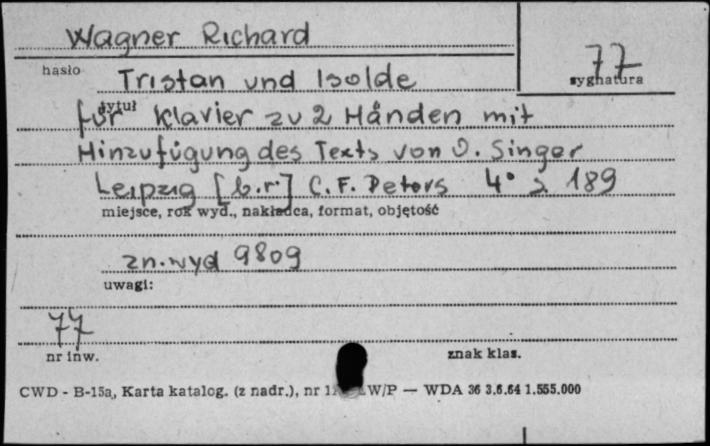 Wagner Richard
77
hasło
sygnatura
Tristan und Isolde
tytuł
für Klavier zu 2 Händen mit
Hinzufügung des Texts von O. Singer
Leipzig [b.r.] C.F. Peters 4° s 189
miejsce, rok wyd., nakładca, format, objętość
zn. wyd 9809
uwagi:
77
nr inw.
znak klas.
CWD - B-15a, Karta katalog. (z nadr.), nr W/P — WDA 36 3.6.64 1.555.000